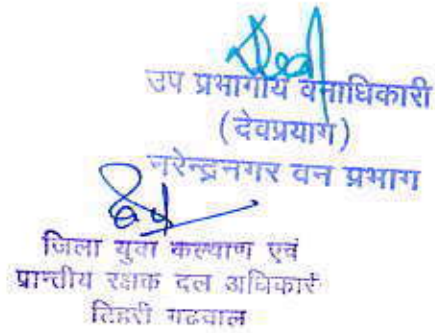 उप प्रभागीय वनाधिकारी
(देवप्रयाग)
नरेन्द्रनगर वन प्रभाग
जिला युवा कल्याण एवं
प्रान्तीय रक्षक दल अधिकारी
टिहरी गढवाल